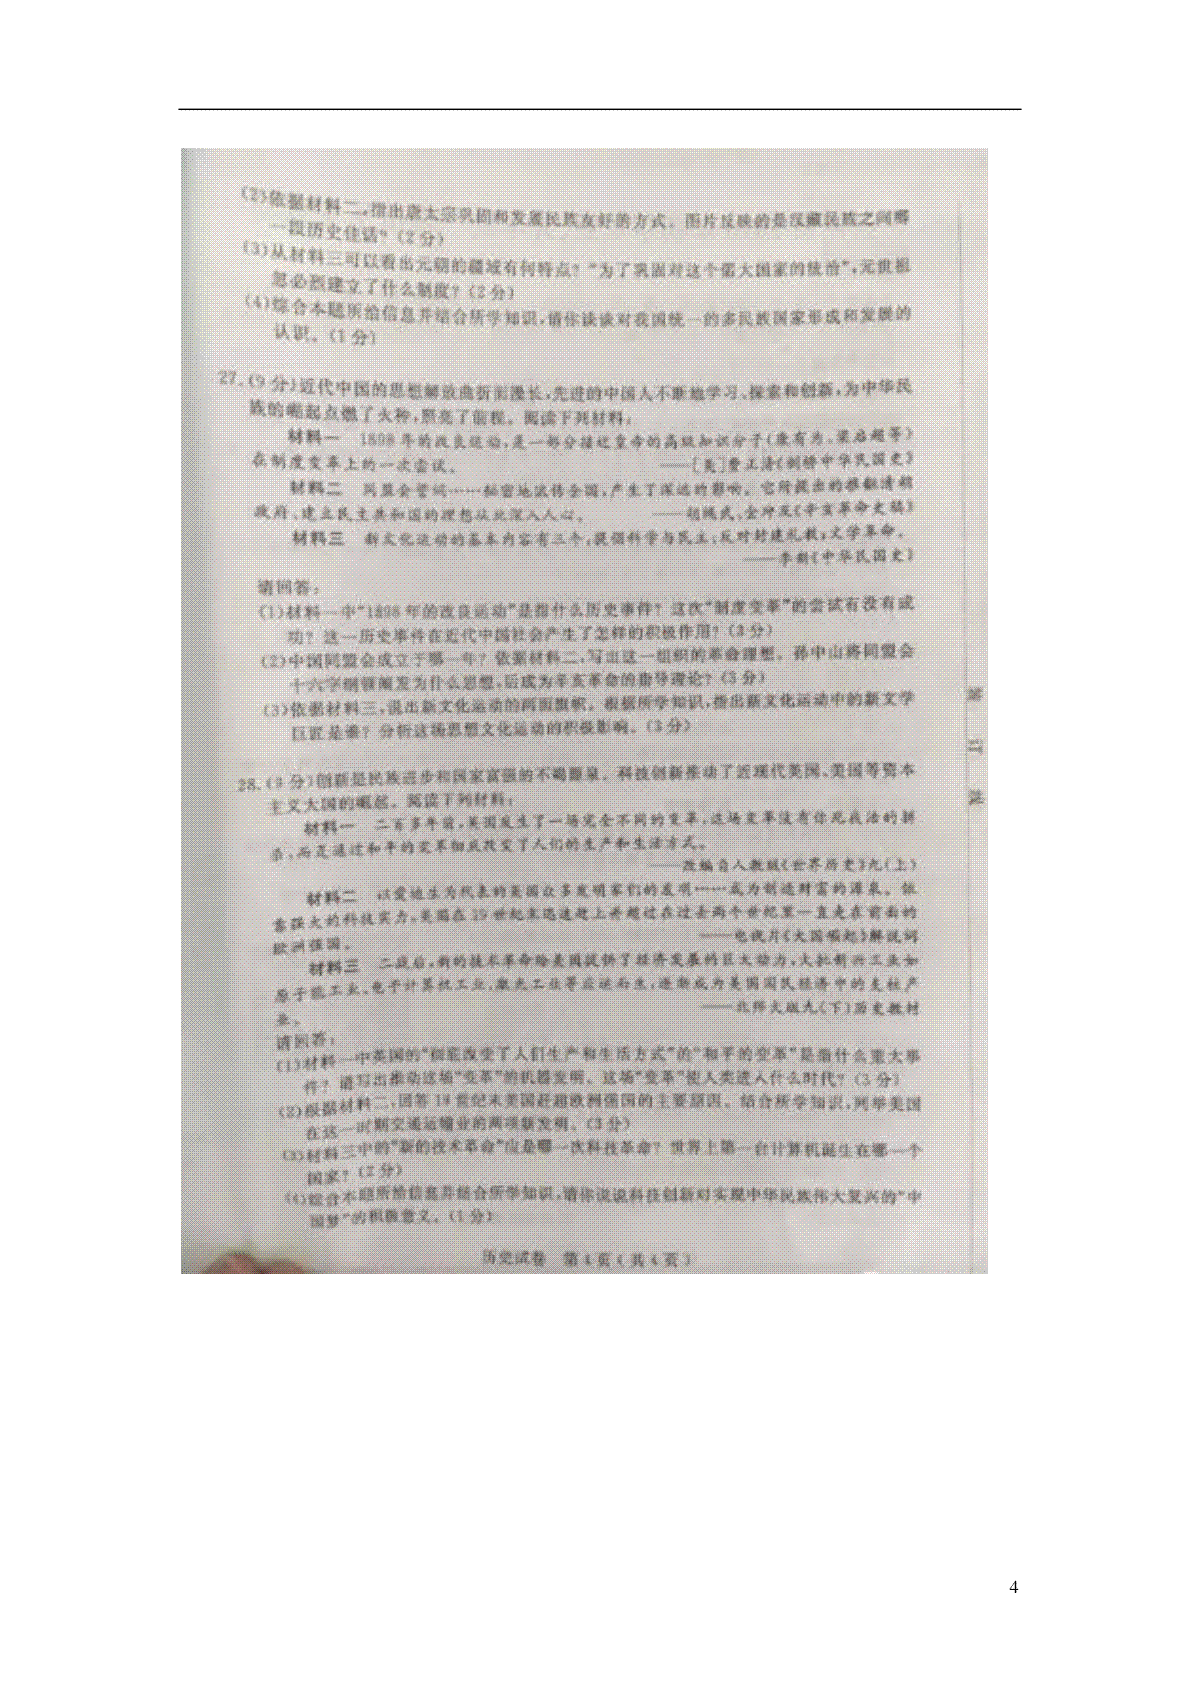 (2)依据材料二,指出唐太宗巩固和发展民族友好的方式。图片反映的是汉藏民族之间哪
一段历史佳话?(2分)
(3)从材料三可以看出元朝的疆域有何特点?“为了巩固对这个偌大国家的统治”,元世祖
忽必烈建立了什么制度?(2分)
(4)综合本题所给信息并结合所学知识,请你谈谈对我国统一的多民族国家形成和发展的
认识。(1分)
27.(9分)近代中国的思想解放曲折而漫长,先进的中国人不断地学习、探索和创新,为中华民
族的崛起点燃了火种,照亮了前程。阅读下列材料:
材料一 1898年的改良运动,是一部分接近皇帝的高级知识分子(康有为、梁启超等)
在制度变革上的一次尝试。 ——[美]费正清《剑桥中华民国史》
材料二 同盟会誓词……秘密地流传全国,产生了深远的影响。它所提出的推翻清朝
政府、建立民主共和国的理想从此深入人心。 ——胡绳武、金冲及《辛亥革命史稿》
材料三 新文化运动的基本内容有三个:提倡科学与民主;反对封建礼教;文学革命。
——李新《中华民国史》
请回答:
(1)材料一中“1898年的改良运动”是指什么历史事件?这次“制度变革”的尝试有没有成
功?这一历史事件在近代中国社会产生了怎样的积极作用?(3分)
(2)中国同盟会成立于哪一年?依据材料二,写出这一组织的革命理想。孙中山将同盟会
十六字纲领阐发为什么思想,后成为辛亥革命的指导理论?(3分)
(3)依据材料三,说出新文化运动的两面旗帜。根据所学知识,指出新文化运动中的新文学
巨匠是谁?分析这场思想文化运动的积极影响。(3分)
28.(9分)创新是民族进步和国家富强的不竭源泉。科技创新推动了近现代英国、美国等资本
主义大国的崛起。阅读下列材料:
材料一 二百多年前,英国发生了一场完全不同的变革,这场变革没有你死我活的拼
杀,而是通过和平的变革彻底改变了人们的生产和生活方式。
——改编自人教版《世界历史》九(上)
材料二 以爱迪生为代表的美国众多发明家们的发明……成为创造财富的源泉。依
靠强大的科技实力,美国在19世纪末迅速赶上并超过在过去两个世纪里一直走在前面的
欧洲强国。 ——电视片《大国崛起》解说词
材料三 二战后,新的技术革命给美国提供了经济发展的巨大动力,大批新兴工业如
原子能工业、电子计算机工业、激光工业等应运而生,逐渐成为美国国民经济中的支柱产
业。 ——北师大版九(下)历史教材
请回答:
(1)材料一中英国的“彻底改变了人们生产和生活方式”的“和平的变革”是指什么重大事
件?请写出推动这场“变革”的机器发明。这场“变革”使人类进入什么时代?(3分)
(2)根据材料二,回答19世纪末美国赶超欧洲强国的主要原因。结合所学知识,列举美国
在这一时期交通运输业的两项新发明。(3分)
(3)材料三中的“新的技术革命”应是哪一次科技革命?世界上第一台计算机诞生在哪一个
国家?(2分)
(4)综合本题所给信息并结合所学知识,请你说说科技创新对实现中华民族伟大复兴的“中
国梦”的积极意义。(1分)
历史试卷 第4页(共4页)
订
4